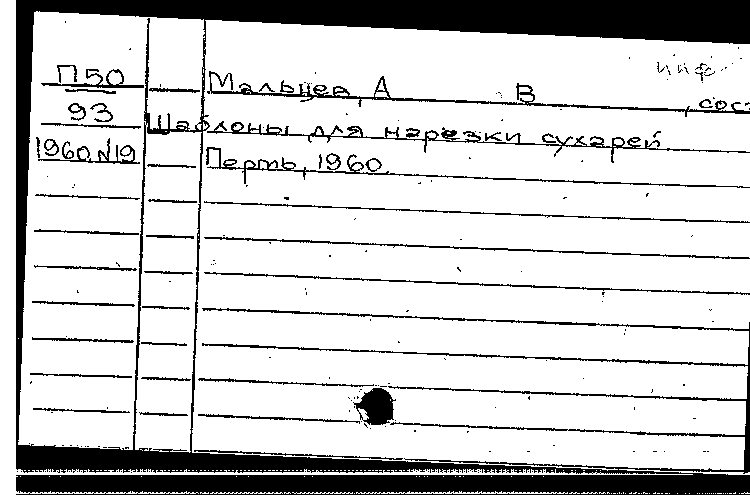 П50
93
1960 N19
Мальцев, А В , сос
Шаблоны для нарезки сухарей.
Пермь, 1960.